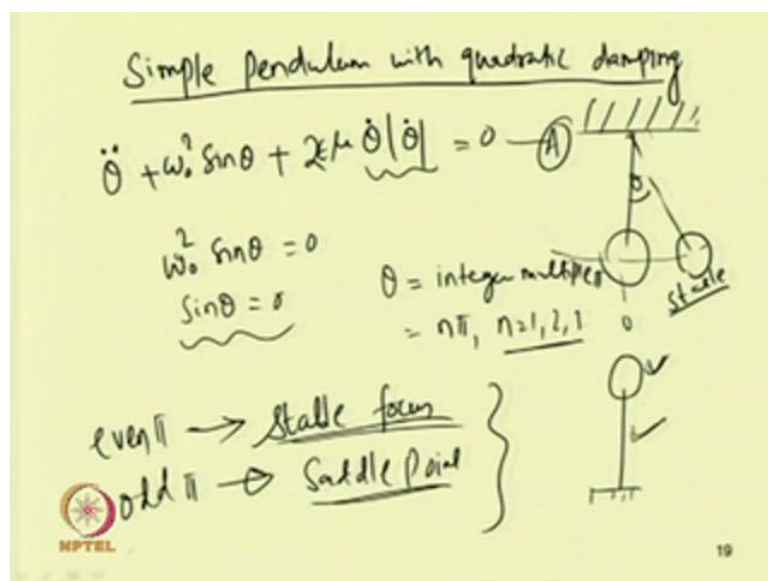 Simple Pendulum with quadratic damping
θ̈ + ω₀² sinθ + 2εμ θ̇|θ̇| = 0 — Ⓐ
θ
ω₀² sinθ = 0
sinθ = 0
θ = integer multiple π
= nπ, n=1,2,3
stable
0
even π → Stable focus
odd π → Saddle Point
NPTEL
19